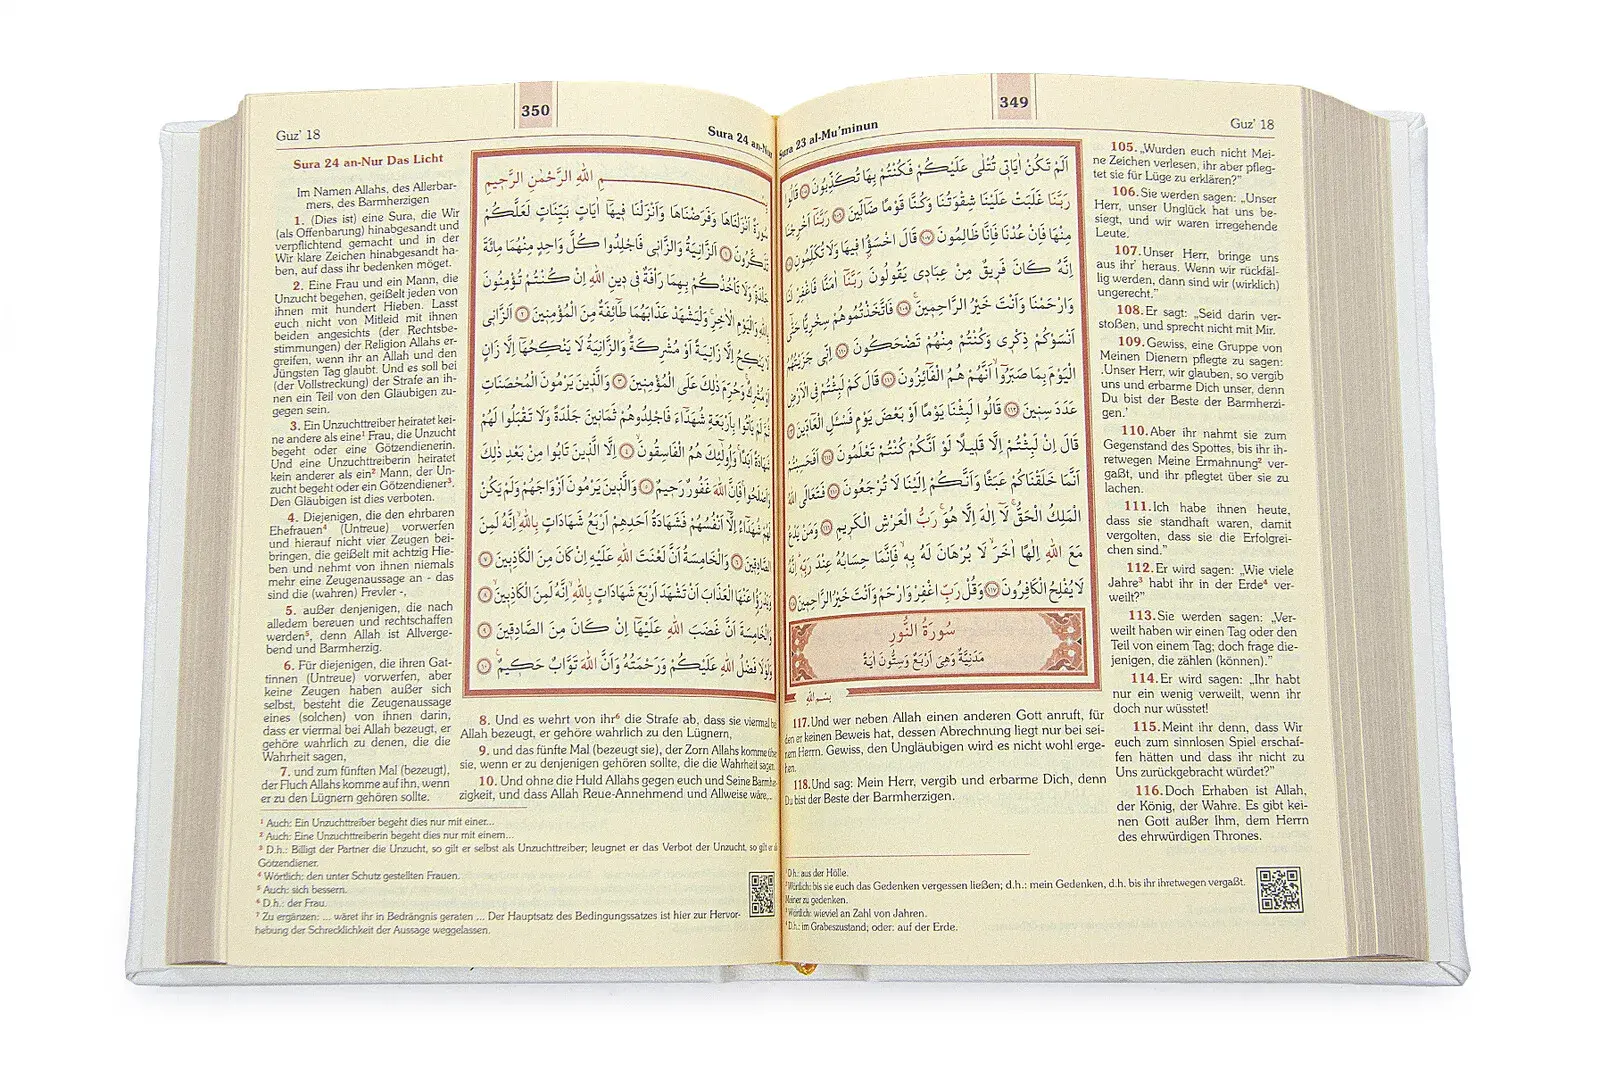 349
Sura 23 al-Mu'minun
Guz' 18
اَلَمْ تَكُنْ اٰيَاتٖي تُتْلٰى عَلَيْكُمْ فَكُنْتُمْ بِهَا تُكَذِّبُونَ ﴿١٠٥﴾ قَالُوا
رَبَّنَا غَلَبَتْ عَلَيْنَا شِقْوَتُنَا وَكُنَّا قَوْمًا ضَٓالّٖينَ ﴿١٠٦﴾ رَبَّنَٓا اَخْرِجْنَا
مِنْهَا فَاِنْ عُدْنَا فَاِنَّا ظَالِمُونَ ﴿١٠٧﴾ قَالَ اخْسَؤُ۫ا فٖيهَا وَلَا تُكَلِّمُونِ ﴿١٠٨﴾
اِنَّهُ كَانَ فَرٖيقٌ مِنْ عِبَادٖي يَقُولُونَ رَبَّنَٓا اٰمَنَّا فَاغْفِرْ لَنَا
وَارْحَمْنَا وَاَنْتَ خَيْرُ الرَّاحِمٖينَ ﴿١٠٩﴾ فَاتَّخَذْتُمُوهُمْ سِخْرِيًّا حَتّٰٓى
اَنْسَوْكُمْ ذِكْرٖي وَكُنْتُمْ مِنْهُمْ تَضْحَكُونَ ﴿١١٠﴾ اِنّٖي جَزَيْتُهُمُ
الْيَوْمَ بِمَا صَبَرُٓوا اَنَّهُمْ هُمُ الْفَٓائِزُونَ ﴿١١١﴾ قَالَ كَمْ لَبِثْتُمْ فِي الْاَرْضِ
عَدَدَ سِنٖينَ ﴿١١٢﴾ قَالُوا لَبِثْنَا يَوْمًا اَوْ بَعْضَ يَوْمٍ فَسْـَٔلِ الْعَٓادّٖينَ ﴿١١٣﴾
قَالَ اِنْ لَبِثْتُمْ اِلَّا قَلٖيلًا لَوْ اَنَّكُمْ كُنْتُمْ تَعْلَمُونَ ﴿١١٤﴾ اَفَحَسِبْتُمْ
اَنَّمَا خَلَقْنَاكُمْ عَبَثًا وَاَنَّكُمْ اِلَيْنَا لَا تُرْجَعُونَ ﴿١١٥﴾ فَتَعَالَى اللّٰهُ
الْمَلِكُ الْحَقُّ لَٓا اِلٰهَ اِلَّا هُوَ رَبُّ الْعَرْشِ الْكَرٖيمِ ﴿١١٦﴾ وَمَنْ يَدْعُ
مَعَ اللّٰهِ اِلٰهًا اٰخَرَ لَا بُرْهَانَ لَهُ بِهٖ فَاِنَّمَا حِسَابُهُ عِنْدَ رَبِّهٖ اِنَّهُ
لَا يُفْلِحُ الْكَافِرُونَ ﴿١١٧﴾ وَقُلْ رَبِّ اغْفِرْ وَارْحَمْ وَاَنْتَ خَيْرُ الرَّاحِمٖينَ ﴿١١٨﴾
سُورَةُ النُّورِ
مَدَنِيَّةٌ وَهِيَ اَرْبَعٌ وَسِتُّونَ اٰيَةً
بِسْمِ اللّٰهِ
105. „Wurden euch nicht Mei-
ne Zeichen verlesen, ihr aber pfleg-
tet sie für Lüge zu erklären?"
106. Sie werden sagen: „Unser
Herr, unser Unglück hat uns be-
siegt, und wir waren irregehende
Leute.
107. Unser Herr, bringe uns
aus ihr¹ heraus. Wenn wir rückfäl-
lig werden, dann sind wir (wirklich)
ungerecht."
108. Er sagt: „Seid darin ver-
stoßen, und sprecht nicht mit Mir.
109. Gewiss, eine Gruppe von
Meinen Dienern pflegte zu sagen:
‚Unser Herr, wir glauben, so vergib
uns und erbarme Dich unser, denn
Du bist der Beste der Barmherzi-
gen.'
110. Aber ihr nahmt sie zum
Gegenstand des Spottes, bis ihr ih-
retwegen Meine Ermahnung² ver-
gaßt, und ihr pflegtet über sie zu
lachen.
111. Ich habe ihnen heute,
dass sie standhaft waren, damit
vergolten, dass sie die Erfolgrei-
chen sind."
112. Er wird sagen: „Wie viele
Jahre³ habt ihr in der Erde⁴ ver-
weilt?"
113. Sie werden sagen: „Ver-
weilt haben wir einen Tag oder den
Teil von einem Tag; doch frage die-
jenigen, die zählen (können)."
114. Er wird sagen: „Ihr habt
nur ein wenig verweilt, wenn ihr
doch nur wüsstet!
115. Meint ihr denn, dass Wir
euch zum sinnlosen Spiel erschaf-
fen hätten und dass ihr nicht zu
Uns zurückgebracht würdet?"
116. Doch Erhaben ist Allah,
der König, der Wahre. Es gibt kei-
nen Gott außer Ihm, dem Herrn
des ehrwürdigen Thrones.
117. Und wer neben Allah einen anderen Gott anruft, für
den er keinen Beweis hat, dessen Abrechnung liegt nur bei sei-
nem Herrn. Gewiss, den Ungläubigen wird es nicht wohl erge-
hen.
118. Und sag: Mein Herr, vergib und erbarme Dich, denn
Du bist der Beste der Barmherzigen.
D.h.: aus der Hölle.
Wörtlich: bis sie euch das Gedenken vergessen ließen; d.h.: mein Gedenken, d.h. bis ihr ihretwegen vergaßt.
Meiner zu gedenken.
Wörtlich: wieviel an Zahl von Jahren.
D.h.: im Grabeszustand; oder: auf der Erde.
350
Guz' 18
Sura 24 an-Nur
Sura 24 an-Nur Das Licht
Im Namen Allahs, des Allerbar-
mers, des Barmherzigen
1. (Dies ist) eine Sura, die Wir
(als Offenbarung) hinabgesandt und
verpflichtend gemacht und in der
Wir klare Zeichen hinabgesandt ha-
ben, auf dass ihr bedenken möget.
2. Eine Frau und ein Mann, die
Unzucht begehen, geißelt jeden von
ihnen mit hundert Hieben. Lasst
euch nicht von Mitleid mit ihnen
beiden angesichts (der Rechtsbe-
stimmungen) der Religion Allahs er-
greifen, wenn ihr an Allah und den
Jüngsten Tag glaubt. Und es soll bei
(der Vollstreckung) der Strafe an ih-
nen ein Teil von den Gläubigen zu-
gegen sein.
3. Ein Unzuchttreiber heiratet kei-
ne andere als eine¹ Frau, die Unzucht
begeht oder eine Götzendienerin.
Und eine Unzuchttreiberin heiratet
kein anderer als ein² Mann, der Un-
zucht begeht oder ein Götzendiener³.
Den Gläubigen ist dies verboten.
4. Diejenigen, die den ehrbaren
Ehefrauen⁴ (Untreue) vorwerfen
und hierauf nicht vier Zeugen bei-
bringen, die geißelt mit achtzig Hie-
ben und nehmt von ihnen niemals
mehr eine Zeugenaussage an - das
sind die (wahren) Frevler -,
5. außer denjenigen, die nach
alledem bereuen und rechtschaffen
werden⁵, denn Allah ist Allverge-
bend und Barmherzig.
6. Für diejenigen, die ihren Gat-
tinnen (Untreue) vorwerfen, aber
keine Zeugen haben außer sich
selbst, besteht die Zeugenaussage
eines (solchen) von ihnen darin,
dass er viermal bei Allah bezeugt, er
gehöre wahrlich zu denen, die die
Wahrheit sagen,
7. und zum fünften Mal (bezeugt),
der Fluch Allahs komme auf ihn, wenn
er zu den Lügnern gehören sollte.
مِ اللّٰهِ الرَّحْمٰنِ الرَّحٖيمِ
سُورَةٌ اَنْزَلْنَاهَا وَفَرَضْنَاهَا وَاَنْزَلْنَا فٖيهَٓا اٰيَاتٍ بَيِّنَاتٍ لَعَلَّكُمْ
تَذَكَّرُونَ ﴿١﴾ اَلزَّانِيَةُ وَالزَّانٖي فَاجْلِدُوا كُلَّ وَاحِدٍ مِنْهُمَا مِائَةَ
جَلْدَةٍ وَلَا تَأْخُذْكُمْ بِهِمَا رَأْفَةٌ فٖي دٖينِ اللّٰهِ اِنْ كُنْتُمْ تُؤْمِنُونَ
بِاللّٰهِ وَالْيَوْمِ الْاٰخِرِ وَلْيَشْهَدْ عَذَابَهُمَا طَٓائِفَةٌ مِنَ الْمُؤْمِنٖينَ ﴿٢﴾ اَلزَّانٖي
لَا يَنْكِحُ اِلَّا زَانِيَةً اَوْ مُشْرِكَةً وَالزَّانِيَةُ لَا يَنْكِحُهَٓا اِلَّا زَانٍ
اَوْ مُشْرِكٌ وَحُرِّمَ ذٰلِكَ عَلَى الْمُؤْمِنٖينَ ﴿٣﴾ وَالَّذٖينَ يَرْمُونَ الْمُحْصَنَاتِ
ثُمَّ لَمْ يَأْتُوا بِاَرْبَعَةِ شُهَدَٓاءَ فَاجْلِدُوهُمْ ثَمَانٖينَ جَلْدَةً وَلَا تَقْبَلُوا لَهُمْ
شَهَادَةً اَبَدًا وَاُولٰٓئِكَ هُمُ الْفَاسِقُونَ ﴿٤﴾ اِلَّا الَّذٖينَ تَابُوا مِنْ بَعْدِ ذٰلِكَ
وَاَصْلَحُوا فَاِنَّ اللّٰهَ غَفُورٌ رَحٖيمٌ ﴿٥﴾ وَالَّذٖينَ يَرْمُونَ اَزْوَاجَهُمْ وَلَمْ يَكُنْ
لَهُمْ شُهَدَٓاءُ اِلَّٓا اَنْفُسُهُمْ فَشَهَادَةُ اَحَدِهِمْ اَرْبَعُ شَهَادَاتٍ بِاللّٰهِ اِنَّهُ لَمِنَ
الصَّادِقٖينَ ﴿٦﴾ وَالْخَامِسَةُ اَنَّ لَعْنَتَ اللّٰهِ عَلَيْهِ اِنْ كَانَ مِنَ الْكَاذِبٖينَ ﴿٧﴾
وَيَدْرَؤُ۬ا عَنْهَا الْعَذَابَ اَنْ تَشْهَدَ اَرْبَعَ شَهَادَاتٍ بِاللّٰهِ اِنَّهُ لَمِنَ الْكَاذِبٖينَ ﴿٨﴾
وَالْخَامِسَةَ اَنَّ غَضَبَ اللّٰهِ عَلَيْهَٓا اِنْ كَانَ مِنَ الصَّادِقٖينَ ﴿٩﴾
وَلَوْلَا فَضْلُ اللّٰهِ عَلَيْكُمْ وَرَحْمَتُهُ وَاَنَّ اللّٰهَ تَوَّابٌ حَكٖيمٌ ﴿١٠﴾
8. Und es wehrt von ihr⁶ die Strafe ab, dass sie viermal bei
Allah bezeugt, er gehöre wahrlich zu den Lügnern,
9. und das fünfte Mal (bezeugt sie), der Zorn Allahs komme über
sie, wenn er zu denjenigen gehören sollte, die die Wahrheit sagen.
10. Und ohne die Huld Allahs gegen euch und Seine Barmher-
zigkeit, und dass Allah Reue-Annehmend und Allweise wäre,..
¹ Auch: Ein Unzuchttreiber begeht dies nur mit einer...
² Auch: Eine Unzuchttreiberin begeht dies nur mit einem...
³ D.h.: Billigt der Partner die Unzucht, so gilt er selbst als Unzuchttreiber; leugnet er das Verbot der Unzucht, so gilt er als
Götzendiener.
⁴ Wörtlich: den unter Schutz gestellten Frauen.
⁵ Auch: sich bessern.
⁶ D.h.: der Frau.
⁷ Zu ergänzen: ... wäret ihr in Bedrängnis geraten ... Der Hauptsatz des Bedingungssatzes ist hier zur Hervor-
hebung der Schrecklichkeit der Aussage weggelassen.